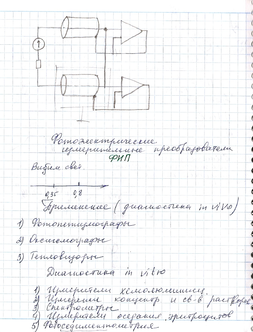 Фотоэлектрические
измерительные преобразователи
ФИП
Видим свет
0,35 0,8
Применение (диагностика in vivo)
1) Фотоплетизмографы
2) Оксигемографы
3) Тепловизоры
Диагностика in vitro
1) Измерители хемолюминисц.
2) Измерение концентр и св-в растворов
3) Спектрометрые
4) Измерители оседания эритроцитов
5) Фотоседиментометрия